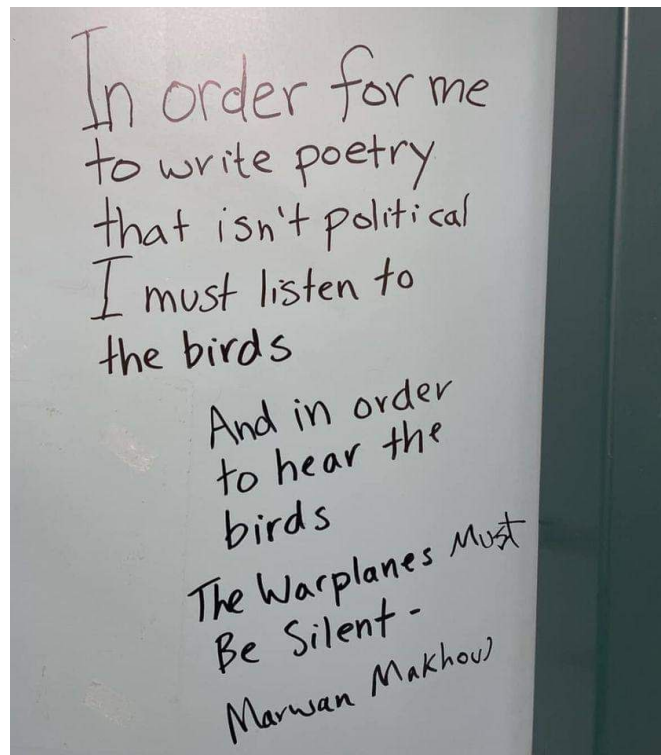 In order for me
to write poetry
that isn't political
I must listen to
the birds
And in order
to hear the
birds
The Warplanes Must
Be Silent -
Marwan Makhoul